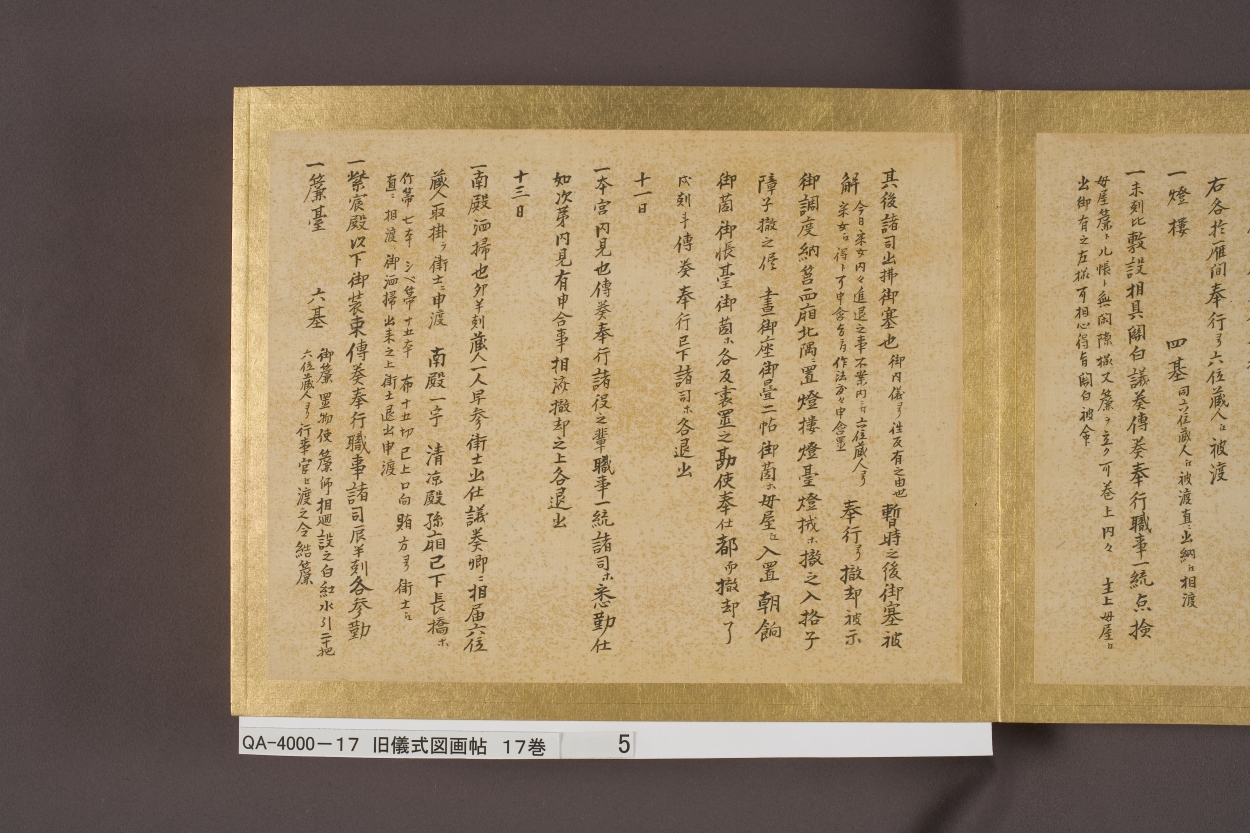 右各於雁間奉行ヨリ六位蔵人ニ被渡
一燈樓 四基 同六位蔵人ニ被渡直ニ出納ニ相渡
一未刻比敷設相具関白議奏傳奏奉行職事一統点撿
母屋簾ト几帳ト無間隙様又簾ヲ立テ可巻上内々 主上母屋ニ
出御有之左様可相心得旨関白被命
其後諸司出拂御塞也 御内儀ヨリ往反有之由也 暫時之後御塞被
解 今日采女内々進退之事不案内ニ付六位蔵人ヨリ
采女ニ得ト可申含旨作法方々申含置 奉行ヨリ撤却被示
御調度納筥西廂北隅ニ置燈樓燈臺燈械ホ撤之入格子
障子撤之後 晝御座御畳二帖御茵ホ母屋ニ入置朝餉
御茵御帳臺御茵ホ各反裏置之勘使奉仕都而撤却了
戌刻斗傳奏奉行已下諸司ホ各退出
十一日
一本宮内見也傳奏奉行諸役之輩職事一統諸司ホ悉勤仕
如次第内見有申合事相濟撤却之上各退出
十三日
一南殿洒掃也卯半刻蔵人一人早参衛士出仕議奏卿ニ相届六位
蔵人取掛ヲ衛士ニ申渡 南殿一宇 清凉殿孫廂已下長橋ホ
竹箒七本 シベ箒十五本 布十五切已上口向賄方ヨリ衛士ニ
直ニ相渡御洒掃出来之上衛士退出申渡
一紫宸殿以下御装束傳奏奉行職事諸司辰半刻各参勤
一簾臺 六基 御簾置物使簾師相廻設之白紅水引二十把
六位蔵人ヨリ行事官ニ渡之令結簾
QA-4000-17 旧儀式図画帖 17巻 5